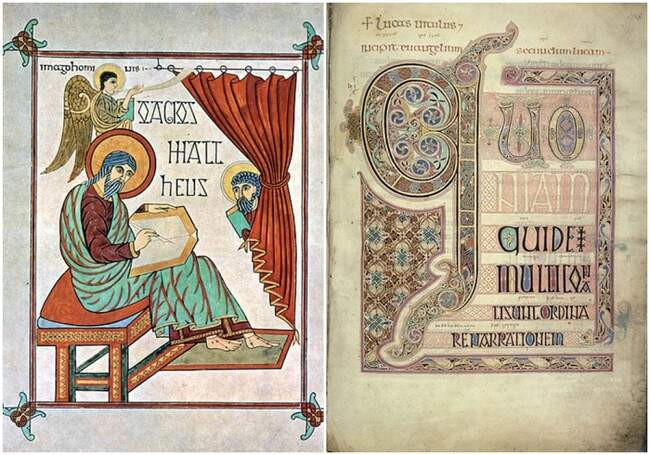 imago hominis
O AGIOS
MATT
HEUS
+ Lucas vitulus
incipit evangelium secundum lucam
QUO
NIAM
QUIDE
MULTI CO
NA
TI SUNT ORDINA
RE NARRATIONEM